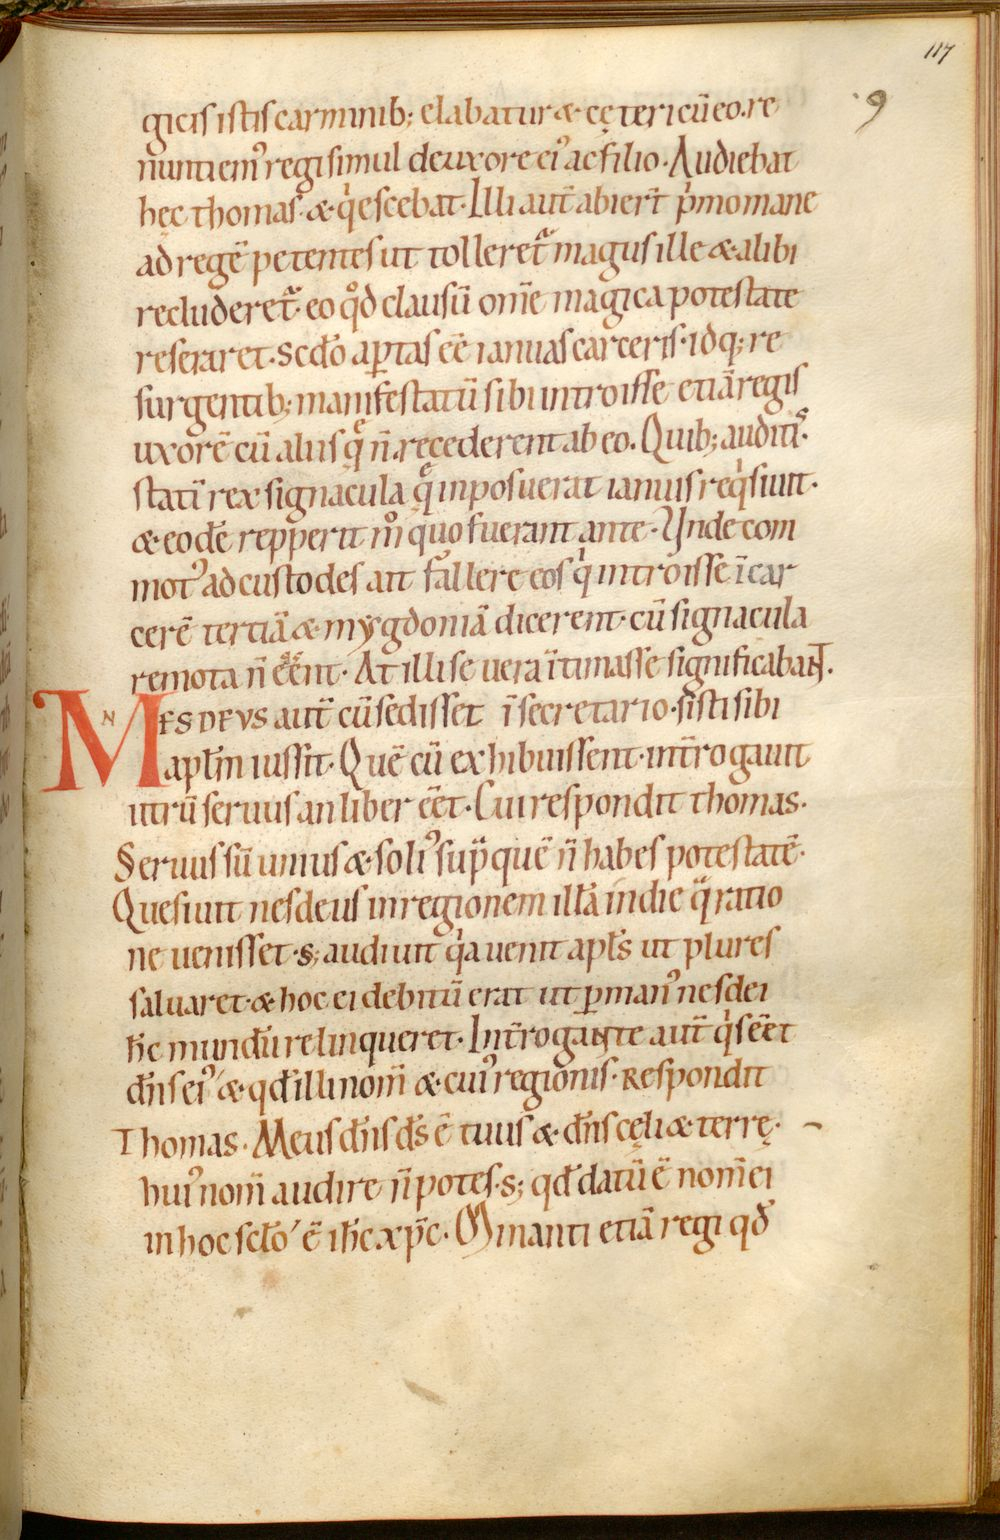 117
9
gicis istis carminib; elabatur & cęteri cū eo. re
nuntiem᾽ regi simul de uxore ei᾽ ac filio. Audiebat
hęc thomas. & q̍escebat. Illi aut̄ abier̄t p̍mo mane
ad regē petentes ut tolleret᷑ magus ille & alibi
recluderet᷑. eo qͦd clausū om̄e magica potestate
reseraret. scđo aꝑtas eē ianuas carceris. idq; re
surgentib; manifestatū sibi introisse etiā regis
uxorē cū aliis q̄ n̄ recederent ab eo. Quib; auditis.
statī rex signacula q̄ inposuerat ianuis req̍siuit.
& eodē repperit mͦ quo fuerant ante. Unde com
mot᾽ ad custodes ait fallere eos q̍ introisse ī car
cerē tertiā & mygdoniā dicerent. cū signacula
remota n̄ eēnt. At illi se uera ītimasse significabant.
N
MESDEVS aut̄ cū sedisset ī secretario. sisti sibi
apl̄m iussit. Quē cū exhibuissent. int̄rogauit
utrū seruus an liber eēt. Cui respondit thomas.
Seruus sū unius & soli᾽ sup̄ quē n̄ habes potestatē.
Quesiuit nesdeus in regionem illā indie q̄ ratio
ne uenisset. s; audiuit q̍a uenit apl̄s ut plures
saluaret. & hoc ei debitū erat ut ꝑ man᾽ nesdei
h̄c mundū relinqueret. Int̄rogante aut̄ q̍s eēt
dn̄s ei᾽ & qđ illi nom̄ & cui᾽ regionis. Respondit
Thomas. Meus dn̄s dš ē tuus & dn̄s cęli & terrę.
hui᾽ nom̄ audire n̄ potes. s; qđ datū ē nom̄ ei
in hoc sc̄lo ē ih̄c xp̄c. Minanti etiā regi qđ